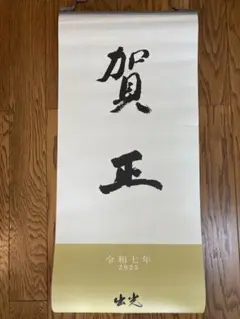 賀
正
令和七年
2025
出光